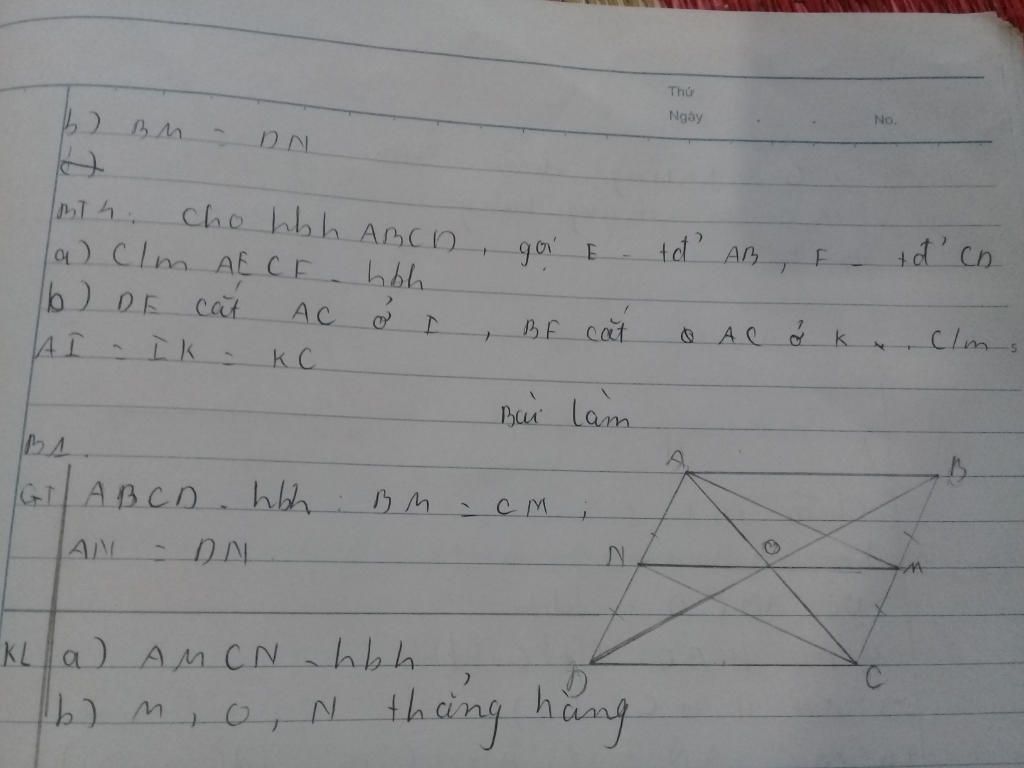 Thứ
Ngày . . No.
b) BM = DN
BT4: Cho hbh ABCD, gọi E - tđ' AB, F - tđ' CD
a) C/m AECF - hbh
b) DE cắt AC ở I, BF cắt AC ở K. C/m:
AI = IK = KC
Bài làm
B1.
GT ABCD - hbh: BM = CM;
AN = DN
KL a) AMCN - hbh
b) M, O, N thẳng hàng
A B
N O M
D C